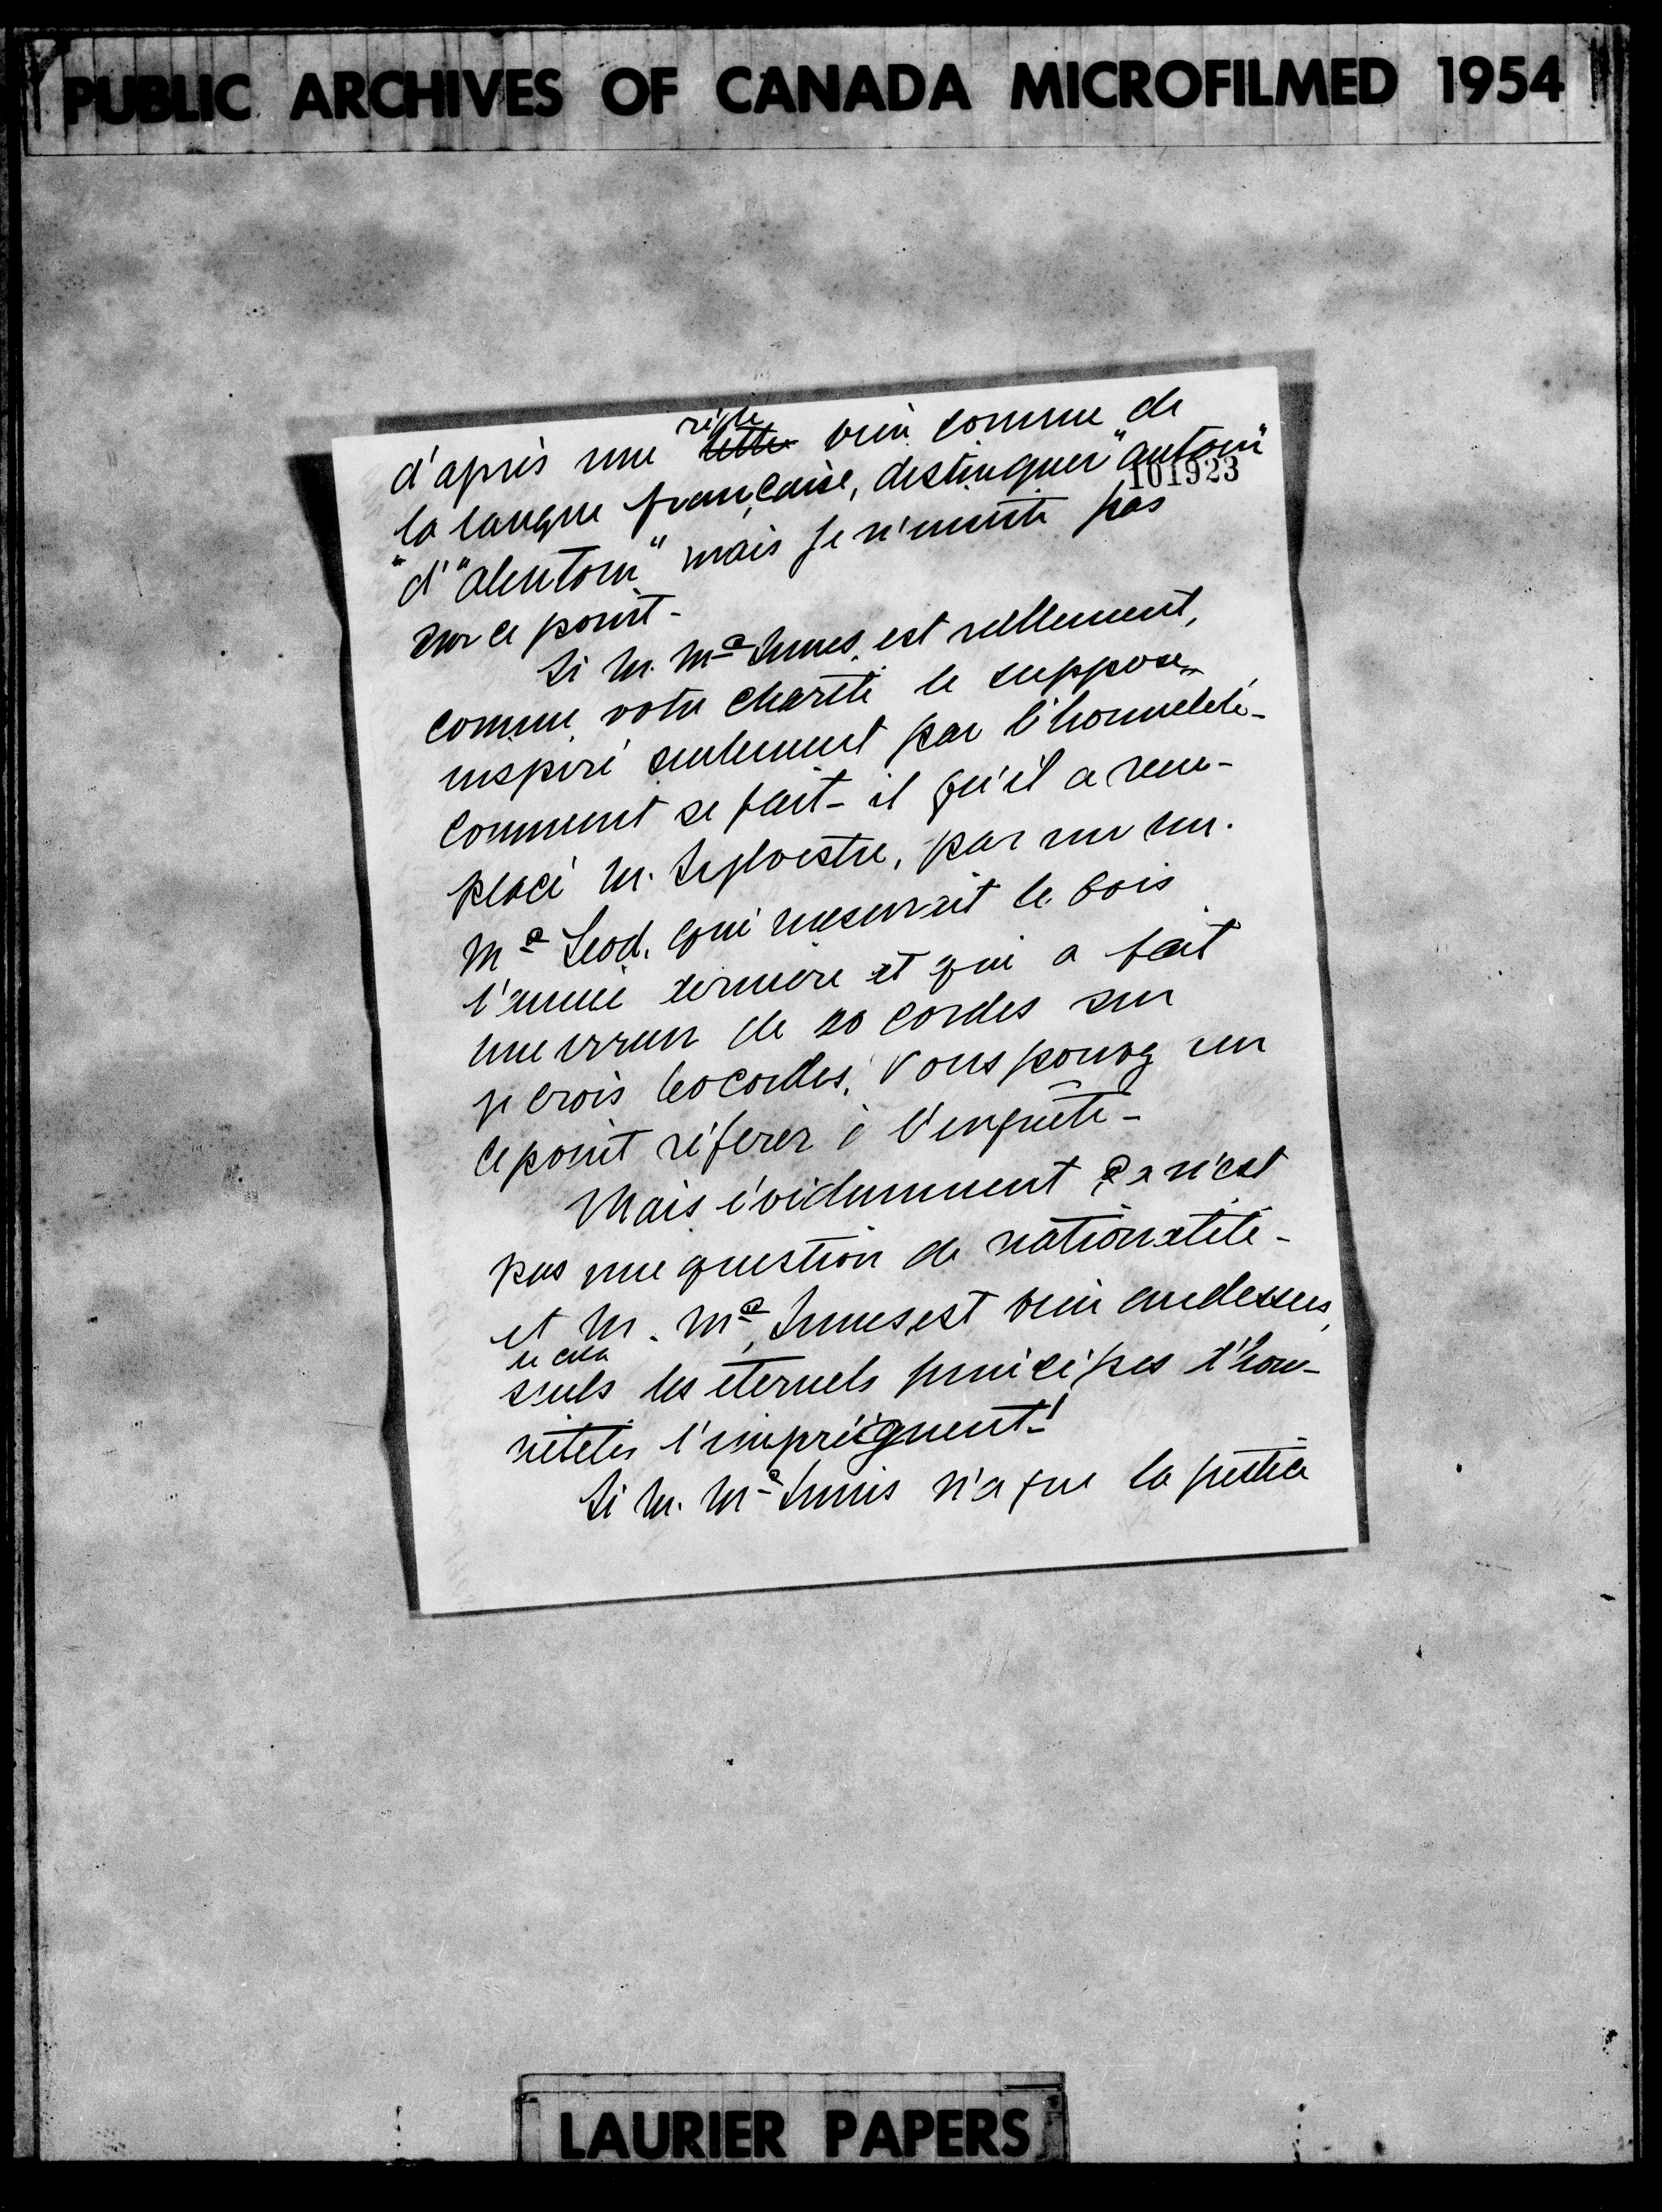 PUBLIC ARCHIVES OF CANADA MICROFILMED 1954
règle
d'après une lettre bien connue de
la langue française, distinguer "autour"
101923
"d'"alentour" mais je n'insiste pas
sur ce point -
Si M. Mc Innes est réellement,
comme votre charité le suppose,
inspiré seulement par l'honnêteté -
comment se fait-il qu'il a rem-
placé M. Sylvestre, par un M.
Mc Leod, qui mesurait le bois
l'année dernière et qui a fait
une erreur de 20 cordes sur
je crois 60 cordes. Vous pouvez sur
ce point référer à l'enquête -
Mais évidemment ce n'est
pas une question de nationalité -
et M. Mc Innes est bien audessus
de cela
seuls les éternels principes d'hon-
nêteté l'imprègnent !
Si M. Mc Innis n'a que la justice
LAURIER PAPERS